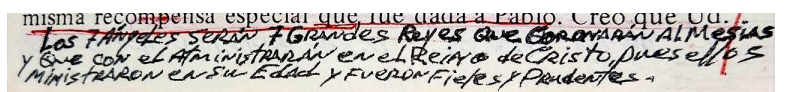 misma recompensa especial que fue dada a Pablo. Creo que Ud.
Los 7 Ángeles serán 7 Grandes Reyes que coronarán al Mesías
y que con el Administrarán en el Reino de Cristo, pues ellos
ministraron en su Edad y fueron Fieles y Prudentes.